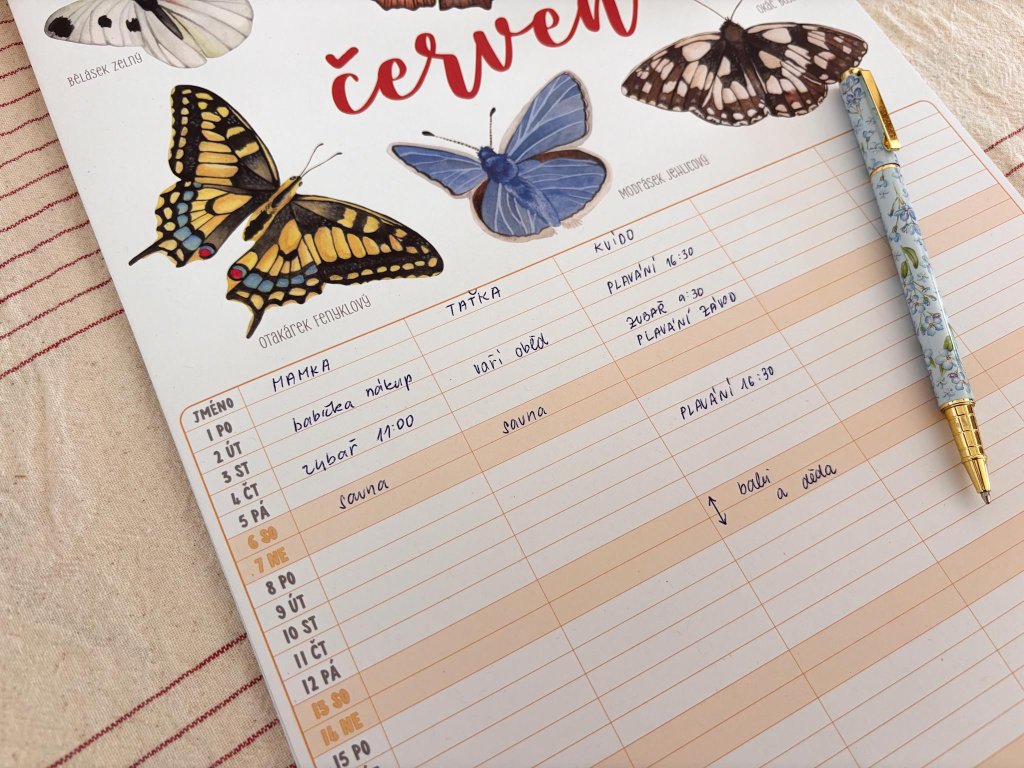 červen
BĚLÁSEK ZELNÝ
OTAKÁREK FENYKLOVÝ
MODRÁSEK JEHLICOVÝ
OKÁČ
JMÉNO MAMKA TAŤKA KVÍDO
1 PO babička nákup vaří oběd PLAVÁNÍ 16:30
2 ÚT
3 ST zubař 11:00 ZUBAŘ 9:30
PLAVÁNÍ ZÁVOD
4 ČT
5 PÁ
6 SO sauna sauna
7 NE
8 PO PLAVÁNÍ 16:30
9 ÚT
10 ST
11 ČT
12 PÁ
13 SO babi
14 NE a děda
15 PO